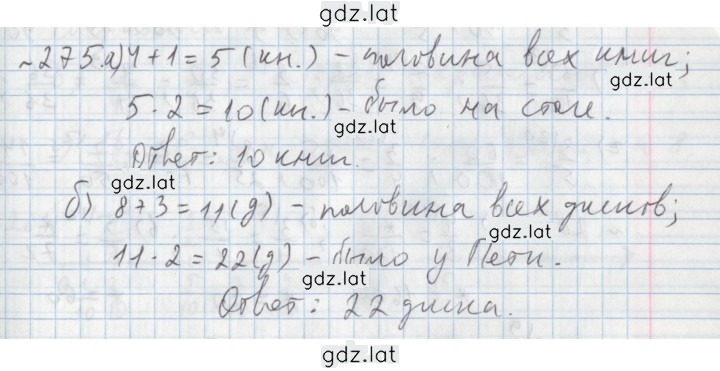 gdz.lat
~275. а) 4 + 1 = 5 (кн.) – половина всех книг;
gdz.lat
5 · 2 = 10 (кн.) – было на столе.
gdz.lat
Ответ: 10 книг.
gdz.lat
б) 8 + 3 = 11 (д) – половина всех дисков;
gdz.lat
11 · 2 = 22 (д) – было у Пети.
gdz.lat
Ответ: 22 диска.
gdz.lat